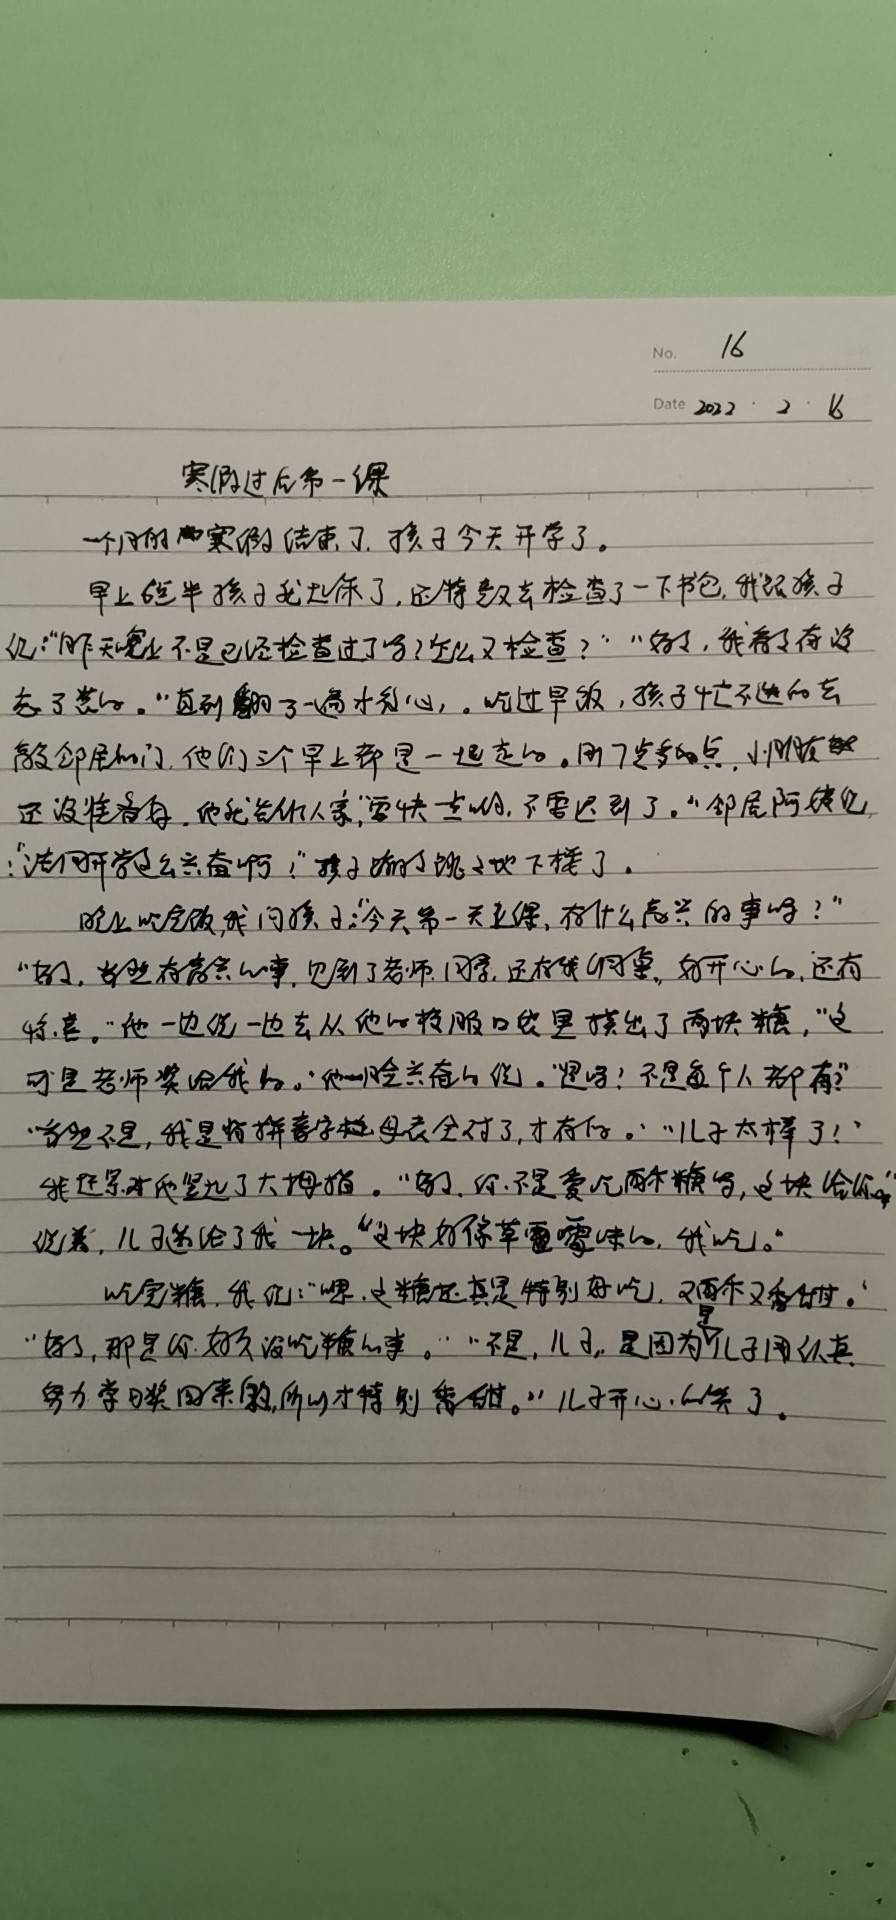 No. 16
Date 2022 · 2 · 16
寒假过后第一课
一个月的寒假结束了,孩子今天开学了。
早上6点半孩子就起床了,还特意又去检查了一下书包,我跟孩子
说:"昨天晚上不是已经检查过了吗?怎么又检查?""妈,我看了有没
忘了其的。"直到翻了一遍才放心,。吃过早饭,孩子忙不迭的去
敲邻居的门,他们三个早上都是一起走的。刚7点多的点,小朋友
还没准备好,他就告诉人家,"要快一点哟,不要迟到了。"邻居阿姨说
:"法们开学这么兴奋啊!"孩子蹦了跳了地下楼了。
晚上吃完饭,我问孩子:"今天第一天上课,有什么高兴的事吗?"
"妈,当然有高兴的事,见到了老师,同学,还有我们同桌,好开心的,还有
特喜。"他一边说一边去从他的校服口袋里摸出了两块糖,"这
可是老师奖给我的。"他一脸兴奋的说。"是吗!不是每个人都有?"
"当然不是,我是将拼音字母表全对了,才有的。""儿子太棒了!"
我赶紧对他竖起了大拇指。"妈,你不是爱吃酥糖吗,这块给你。"
说着,儿子送给了我一块。"这块好像草莓味的,我吃。"
吃完糖,我说:"嗯,这糖还真是特别好吃,又酥又香甜。"
"妈,那是你好久没吃糖的事。""不是,儿子,是因为是儿子用认真
努力学习奖回来的,所以才特别香甜。"儿子开心的笑了。